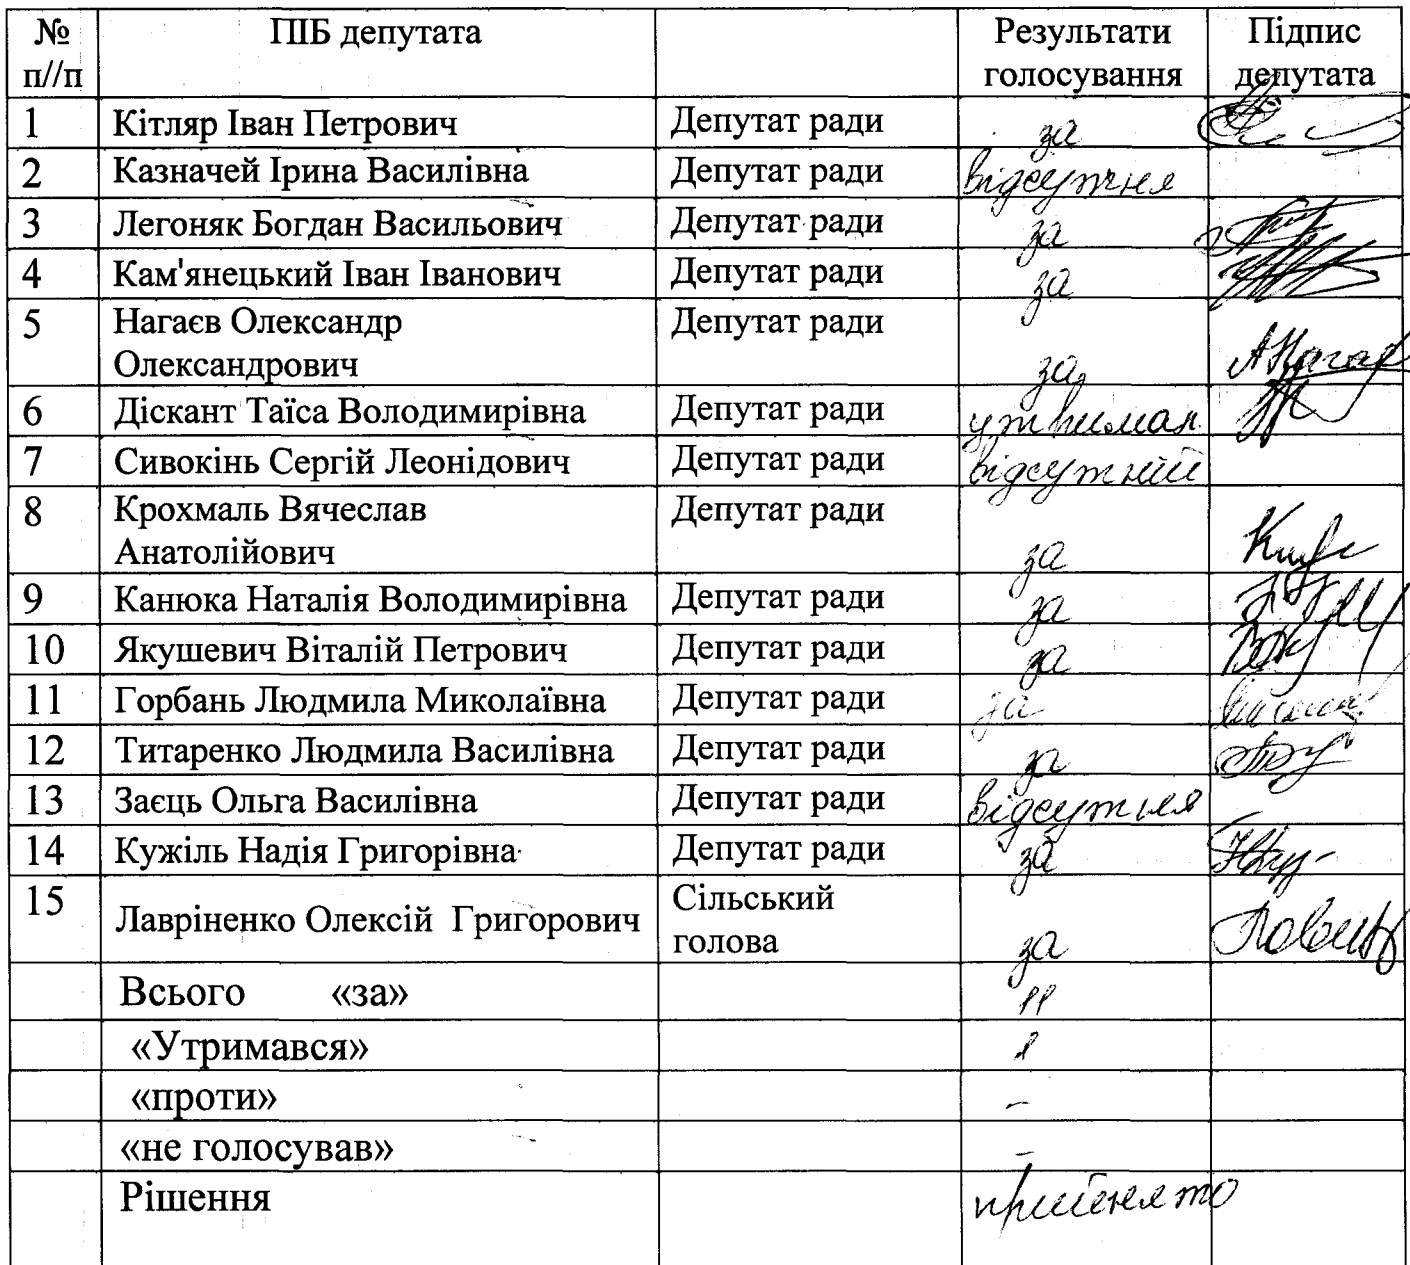 № ПІБ депутата Результати Підпис
п//п голосування депутата
1 Кітляр Іван Петрович Депутат ради за
2 Казначей Ірина Василівна Депутат ради відсутня
3 Легоняк Богдан Васильович Депутат ради за
4 Кам'янецький Іван Іванович Депутат ради за
5 Нагаєв Олександр Депутат ради
Олександрович за
6 Діскант Таїса Володимирівна Депутат ради утримал.
7 Сивокінь Сергій Леонідович Депутат ради відсутній
8 Крохмаль Вячеслав Депутат ради
Анатолійович за
9 Канюка Наталія Володимирівна Депутат ради за
10 Якушевич Віталій Петрович Депутат ради за
11 Горбань Людмила Миколаївна Депутат ради за
12 Титаренко Людмила Василівна Депутат ради за
13 Заєць Ольга Василівна Депутат ради відсутня -
14 Кужіль Надія Григорівна Депутат ради за
15 Лавріненко Олексій Григорович Сільський
голова за
Всього «за» 11
«Утримався» 1
«проти» -
«не голосував» -
Рішення прийнято